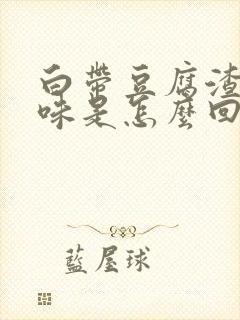 白帶豆腐渣
味是怎麼回
藍屋球